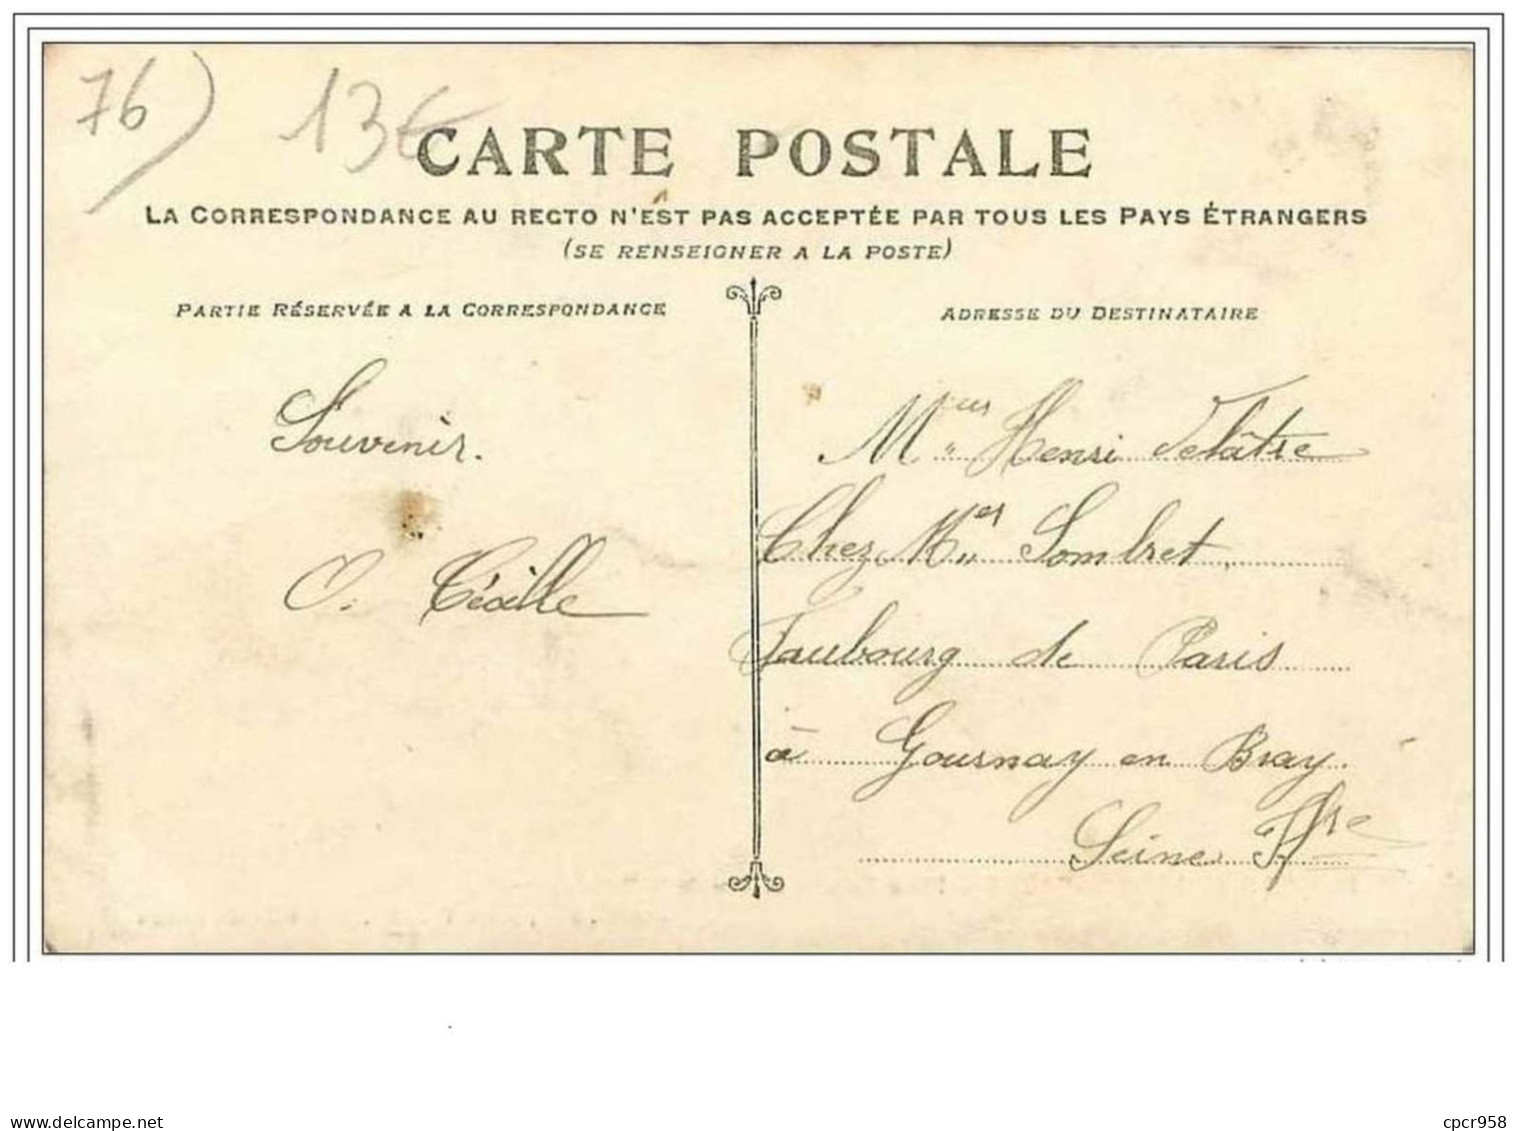 76) 13€
CARTE POSTALE
LA CORRESPONDANCE AU RECTO N'EST PAS ACCEPTÉE PAR TOUS LES PAYS ÉTRANGERS
(SE RENSEIGNER A LA POSTE)
PARTIE RÉSERVÉE A LA CORRESPONDANCE
Souvenir.
O. Técille
ADRESSE DU DESTINATAIRE
Meur Henri Delâtre
Chez Mer Sombret
Faubourg de Paris
à Gournay en Bray.
Seine Ifre
delcampe.net
cpcr958